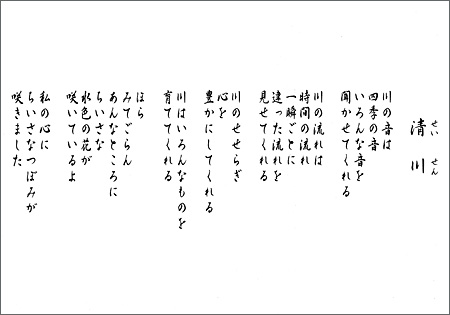 清川
せい せん
川の音は
四季の音
いろんな音を
聞かせてくれる
川の流れは
時間の流れ
一瞬ごとに
違った流れを
見せてくれる
川のせせらぎ
心を
豊かにしてくれる
川はいろんなものを
育ててくれる
ほら
みてごらん
あんなところに
ちいさな
水色の花が
咲いているよ
私の心に
ちいさなつぼみが
咲きました